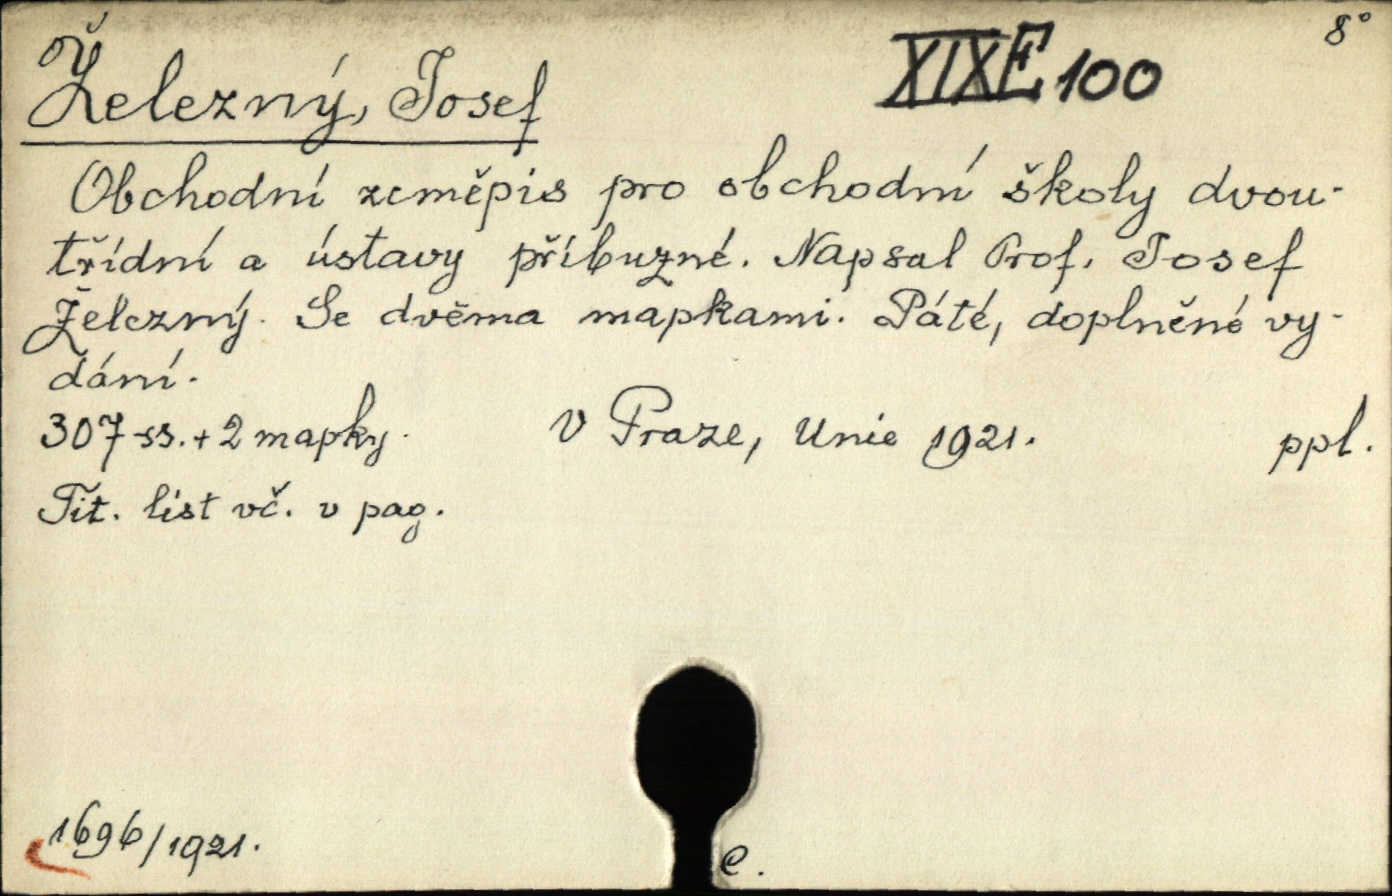 8°
XIXE 100
Železný, Josef
Obchodní zeměpis pro obchodní školy dvou-
třídní a ústavy příbuzné. Napsal Prof. Josef
Železný. Se dvěma mapkami. Páté, doplněné vy-
dání.
307 ss. + 2 mapky. V Praze, Unie 1921. ppl.
Tit. list vč. v pag.
1696/1921.
e.